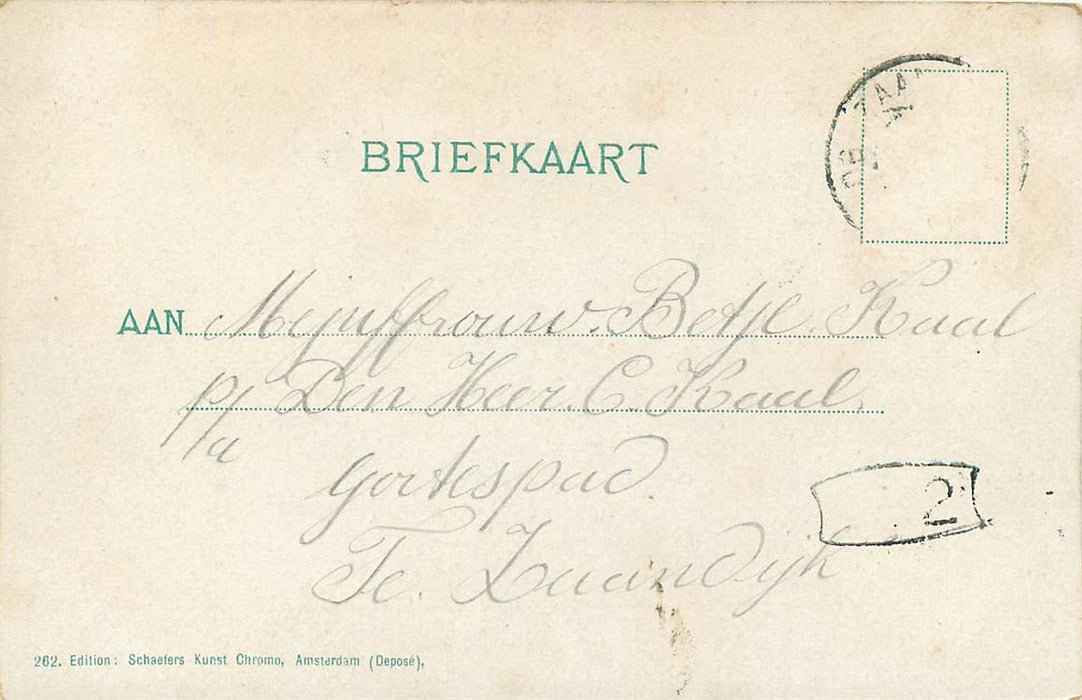 BRIEFKAART
ZAAN
AAN Mejuffrouw. Betje Kaal
p/a Den Heer. C. Kaal.
Gortespad.
Te. Zaandijk
2
262. Edition: Schaefers Kunst Chromo, Amsterdam (Deposé),